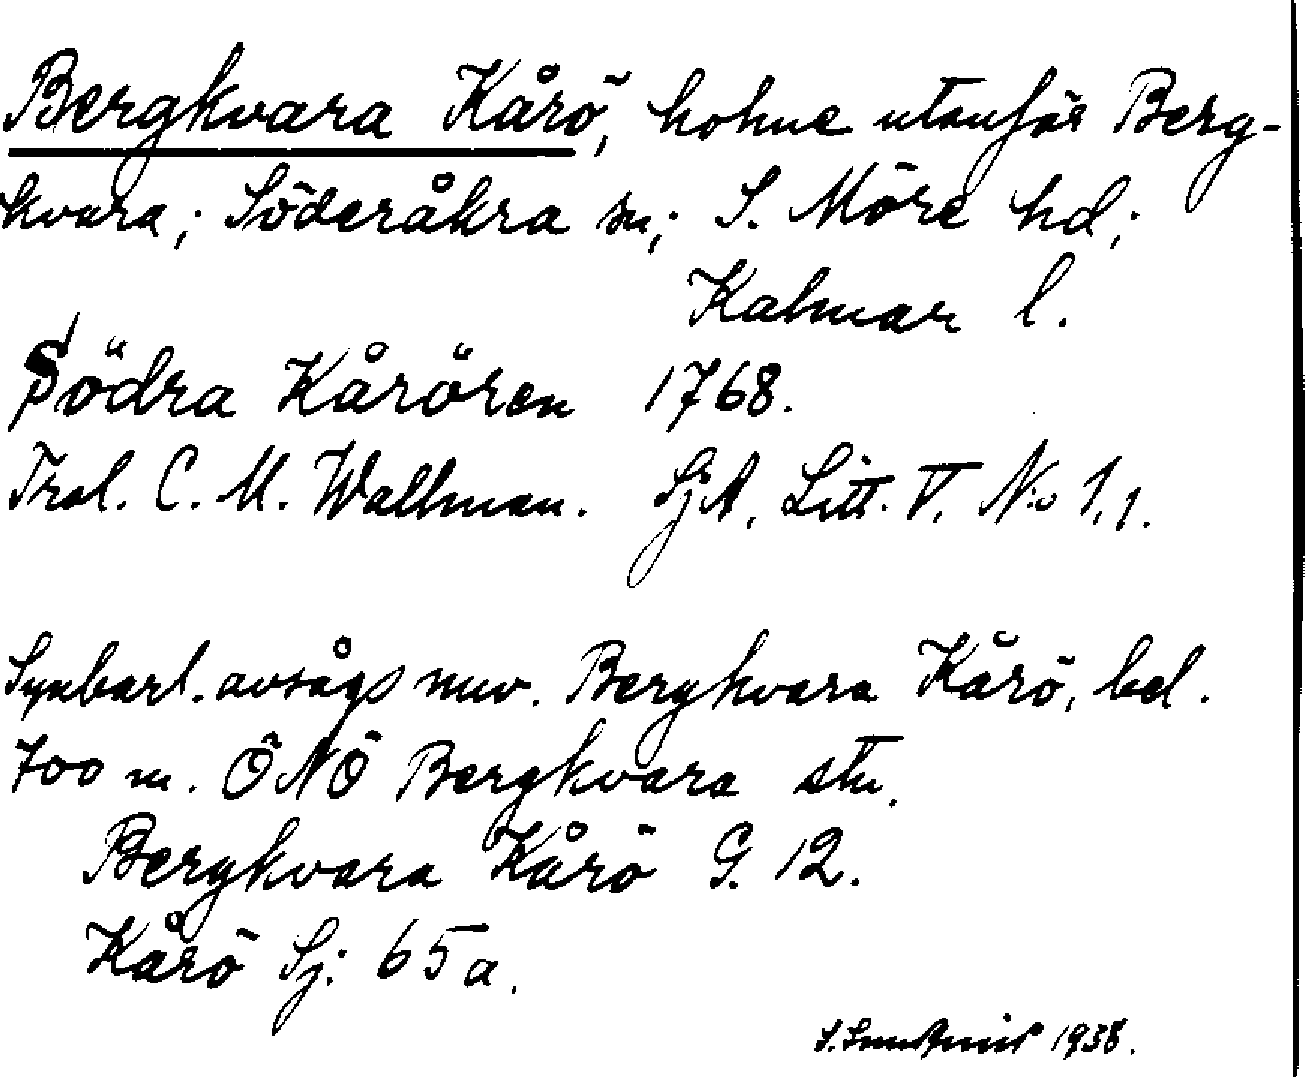 Bergkvara Kårö, holme utanför Berg-
kvara; Söderåkra sn; S. Möre hd;
Kalmar l.
Södra Kårören 1768.
Trol. C. M. Wallman. SjA, Litt. V. No 1,1.
Synbarl. avsågs nuv. Bergkvara Kårö, bel.
700 m. ÖNÖ Bergkvara stn.
Bergkvara Kårö G. 12.
Kårö Sj: 65 a.
1938.